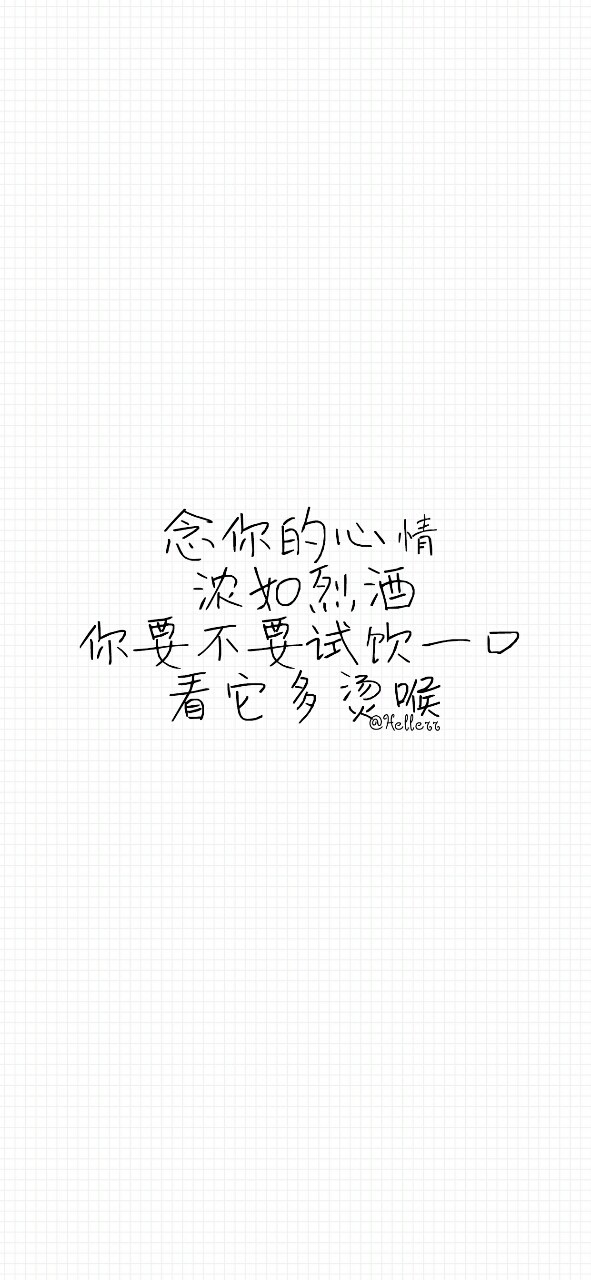 念你的心情
浓如烈酒
你要不要试饮一口
看它多烫喉
@Hellerr